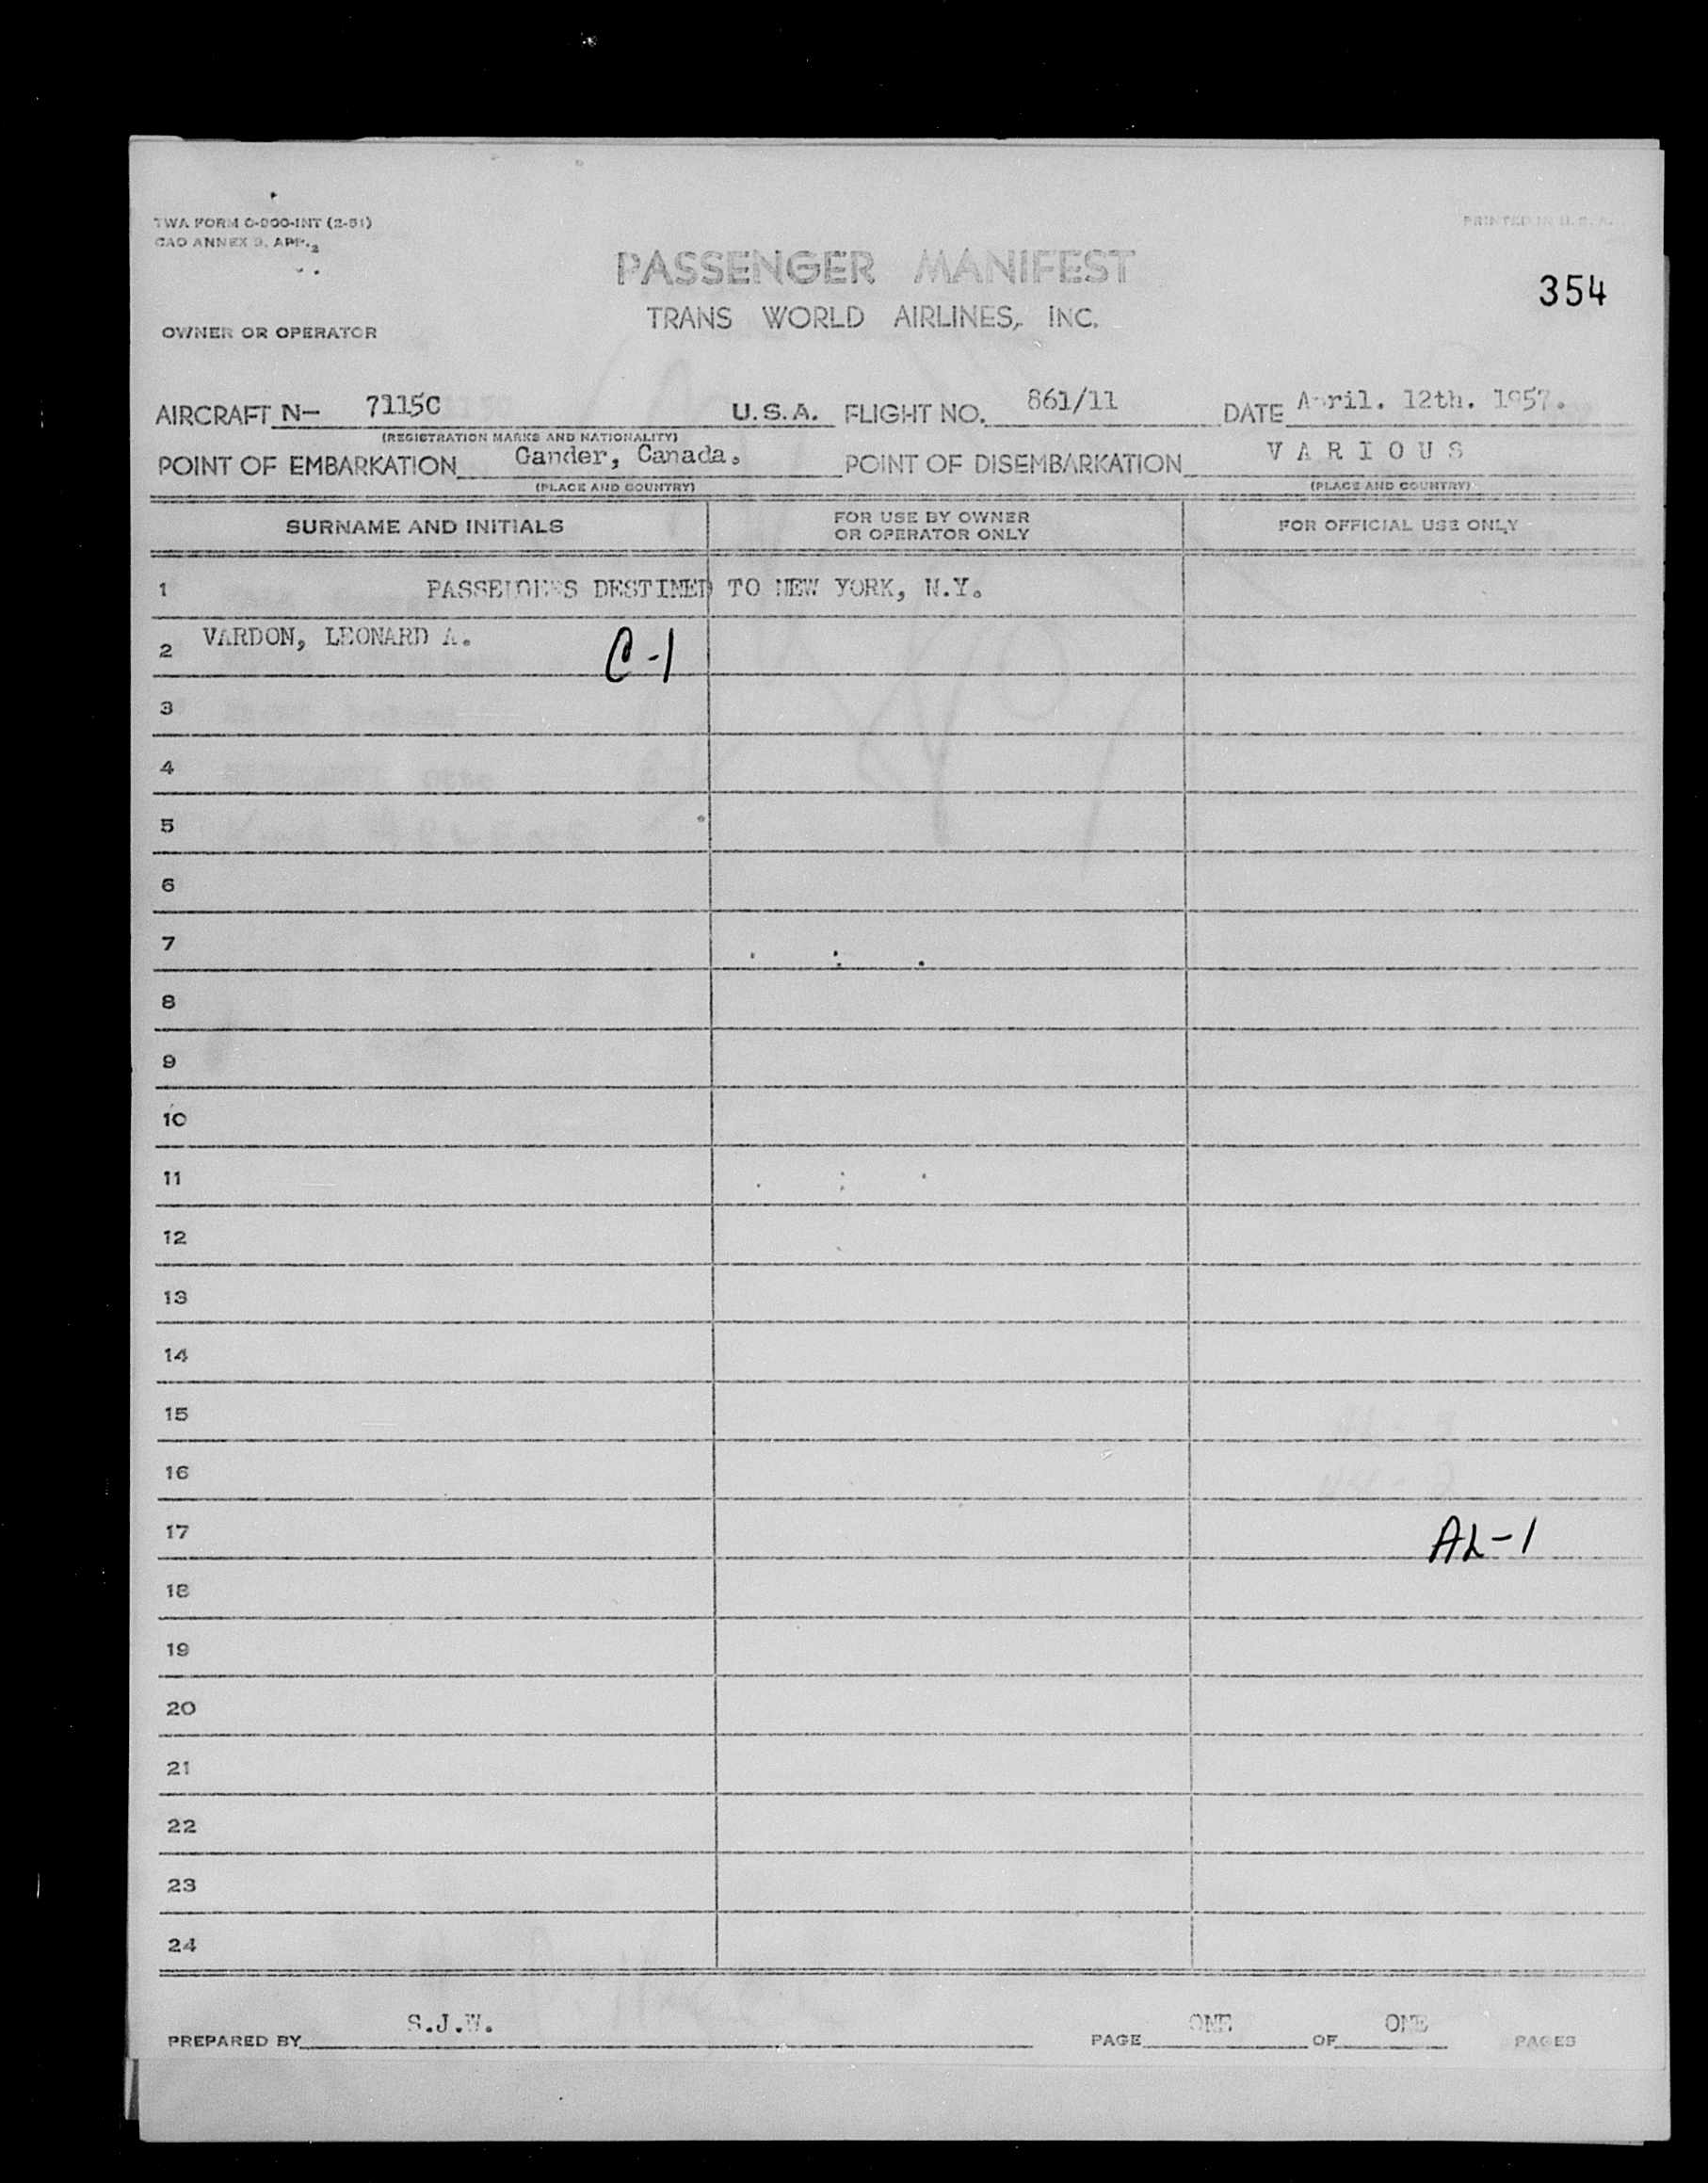 TWA FORM O-900-INT (2-51)
PRINTED IN U. S. A.
CAO ANNEX 9, APP. 2
PASSENGER MANIFEST
354
TRANS WORLD AIRLINES, INC.
OWNER OR OPERATOR
AIRCRAFT N— 7115C U.S.A. FLIGHT NO. 861/11 DATE April. 12th. 1957.
(REGISTRATION MARKS AND NATIONALITY)
POINT OF EMBARKATION Gander, Canada. POINT OF DISEMBARKATION V A R I O U S
(PLACE AND COUNTRY) (PLACE AND COUNTRY)
SURNAME AND INITIALS FOR USE BY OWNER OR OPERATOR ONLY FOR OFFICIAL USE ONLY
1 PASSENGERS DESTINED TO NEW YORK, N.Y.
2 VARDON, LEONARD A. C-1
3
4
5
6
7
8
9
10
11
12
13
14
15
16
17 AL-1
18
19
20
21
22
23
24
PREPARED BY S.J.W. PAGE ONE OF ONE PAGES